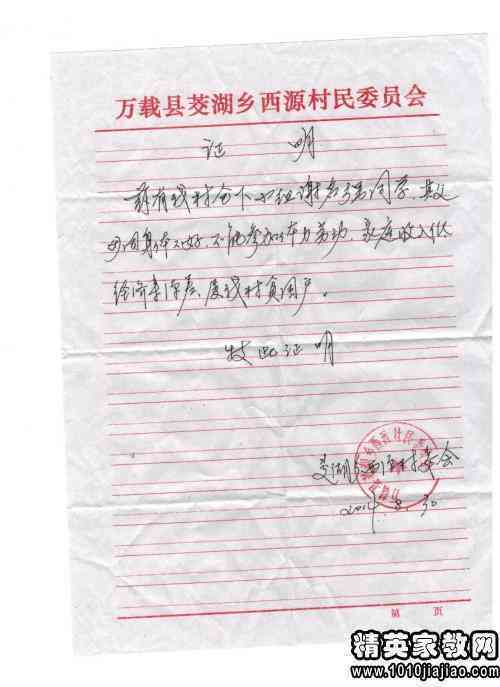 万载县茭湖乡西源村民委员会
证 明
兹有我村 小组谢 同学，其父
母因身体不好，不能参加体力劳动，家庭收入低
经济 ，属我村贫困户。
特此证明
茭湖乡西源村委会
8.30
第 页
精英家教网
www.1010jiajiao.com